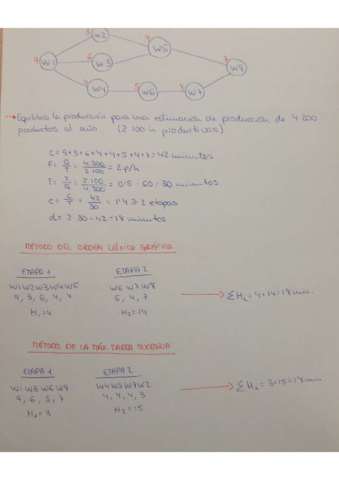 3 W2 4 W5
9 W1 6 W3 7 W8
4 W4 5 W6 4 W7
→ Equilibra la producción para una estimación de producción de 4 200
productos al año (2 100 h productivas)
C = 9+3+6+4+4+5+4+7 = 42 minutos
F = Q/T = 4 200/2 100 = 2 p/h
T = T/Q = 2 100/4 200 = 0'5 · 60 = 30 minutos
e = C/T = 42/30 = 1'4 ≥ 2 etapas
d = 2·30 - 42 = 18 minutos
MÉTODO DEL ORDEN LÉXICO GRÁFICA
ETAPA 1 ETAPA 2
W1 W2 W3 W4 W5 W6 W7 W8
9, 3, 6, 4, 4 5, 4, 7
H1 = 4 H2 = 14 → ΣHi = 4+14 = 18 min.
MÉTODO DE LA MÁX. TAREA SUCESIVA
ETAPA 1 ETAPA 2
W1 W3 W6 W8 W4 W5 W7 W2
9, 6, 5, 7 4, 4, 4, 3
H1 = 3 H2 = 15 → ΣHi = 3+15 = 18 min.